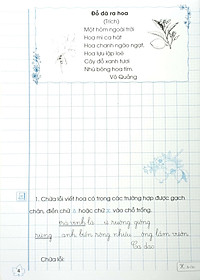 Đồ đá ra hoa
(Trích)
Một hôm ngoài trời
Hoa mi ca hát
Hoa chanh ngào ngạt
Hoa lựu lập loè
Cây đỗ xanh tươi
Nhú bông hoa tím.
Võ Quảng
1. Chữa lỗi viết hoa có trong các trường hợp được gạch
chân, điền chữ hoặc chữ vào chỗ trống.
là ruộng giống
anh liền ông làm vườn
Ca dao
Chữa lỗi:
4